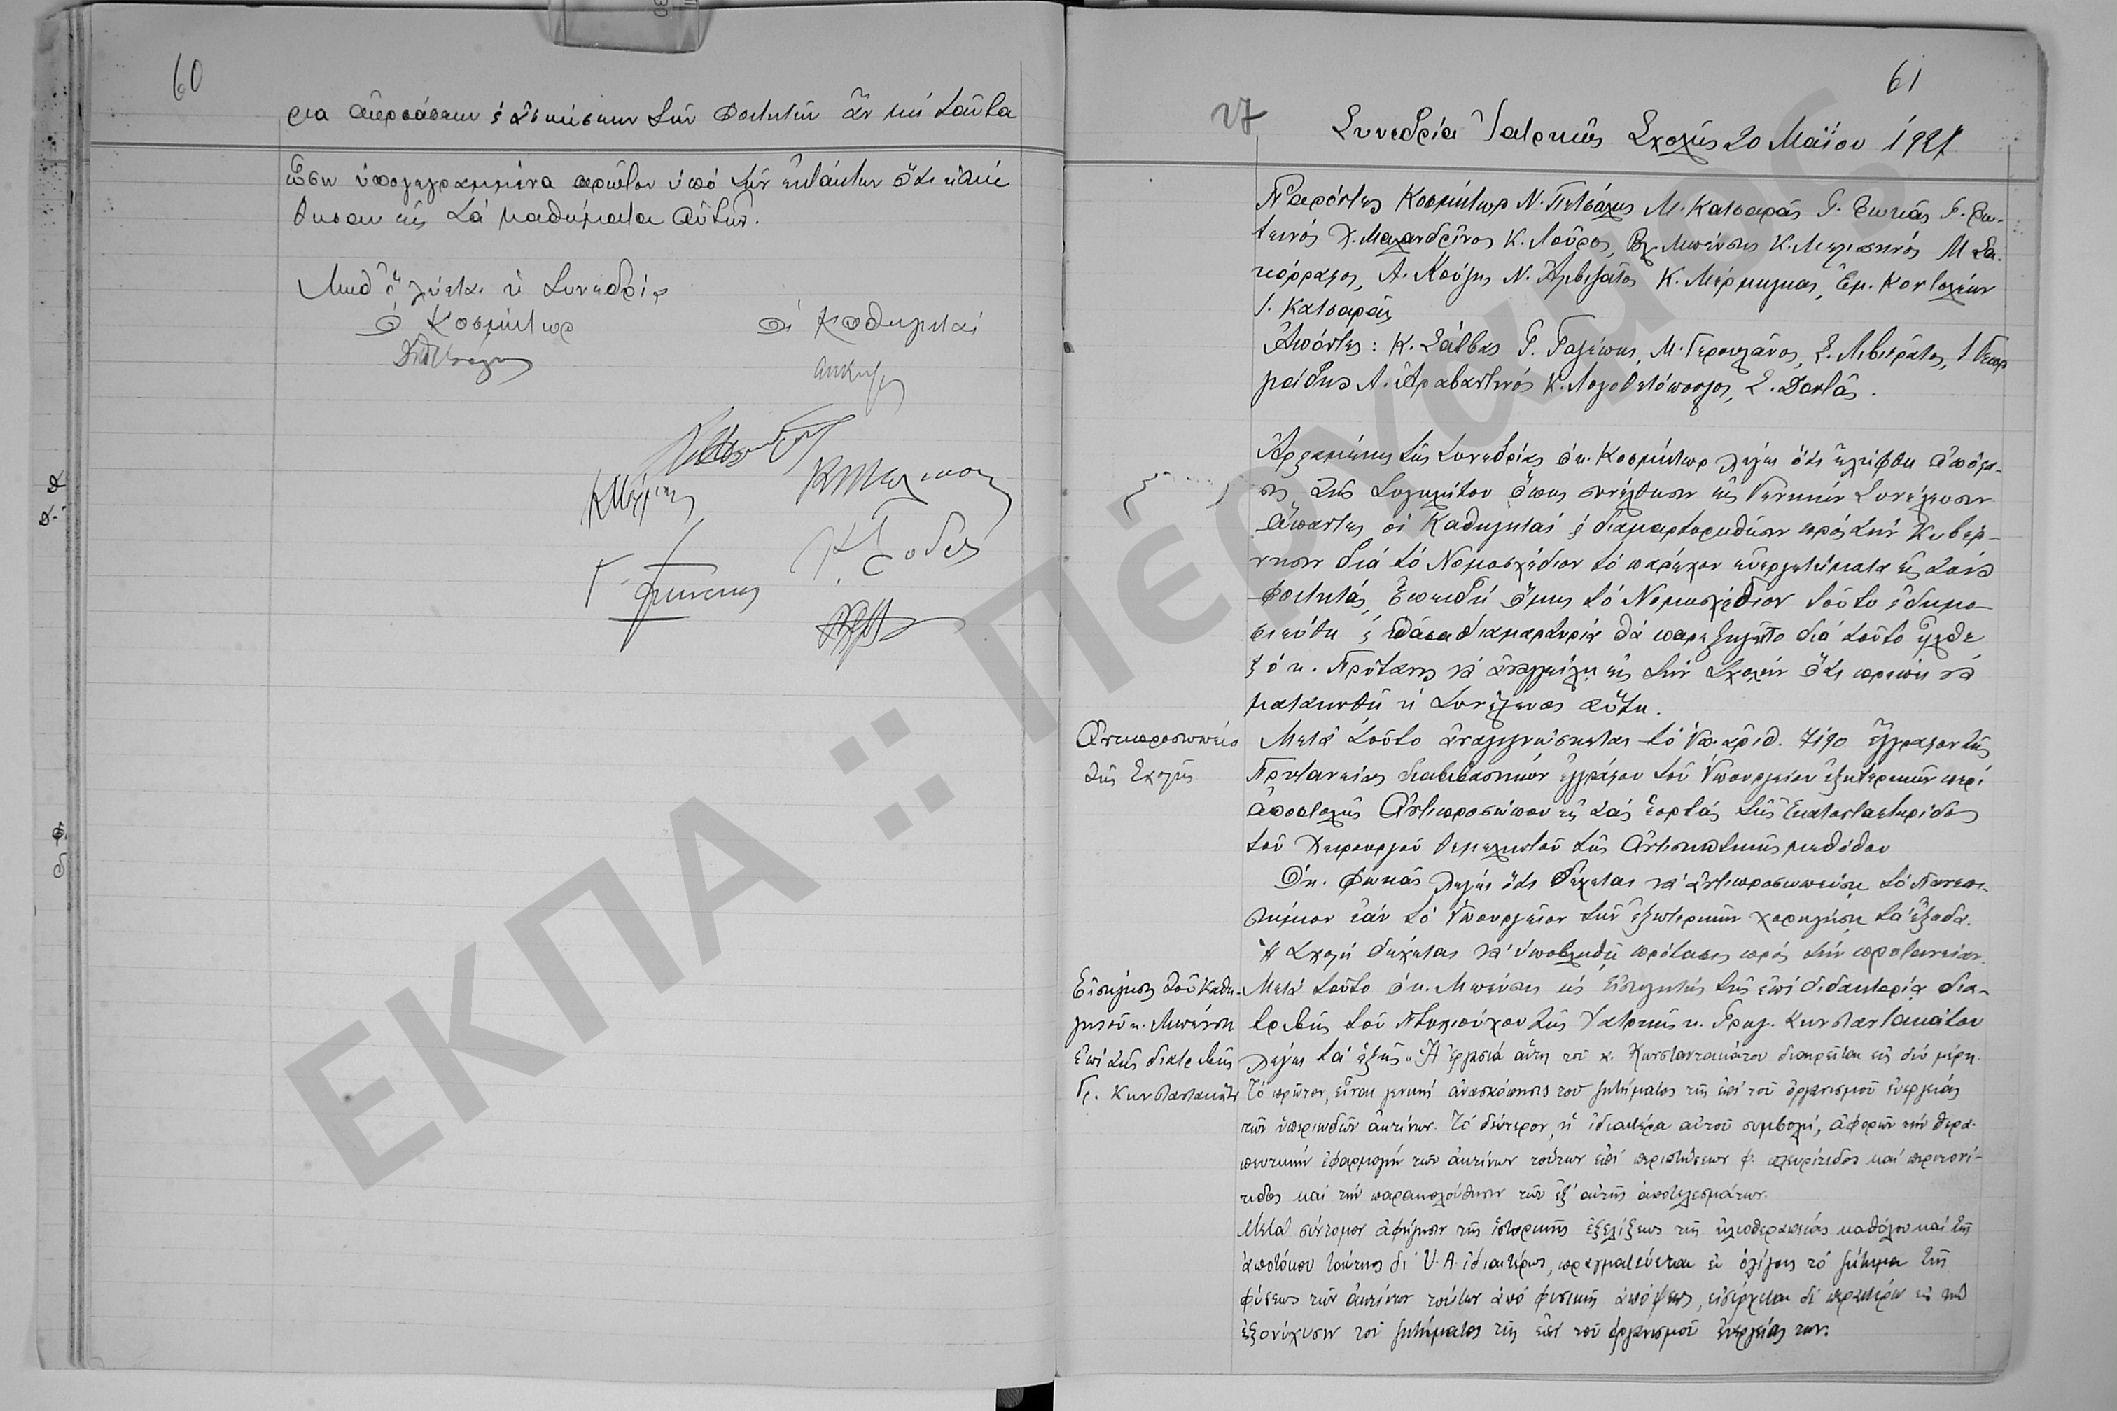 60
ρια ἀπεφάσεων ἐ αἰτήσεων τῶν φοιτητῶν ἂν μή ταῦτα
ὦσιν ὑπογεγραμμένα πρῶτον ὑπό τῶν ἐντάκτων ὅτι
θησαν εἰς τά μαθήματα αὐτῶν.
Μεθ' ὅ λύεται ἡ Συνεδρία
Ὁ Κοσμήτωρ
Οἱ Καθηγηταί
61
27
Συνεδρία Ἰατρικῆς Σχολῆς 20 Μαΐου 1927
Παρόντες Κοσμήτωρ Ν. Πετσάλης Μ. Κατσαρᾶς Γ. Φωκᾶς Γ. Φω-
τεινός Χ. Μαλανδρῖνος Κ. Λοῦρος, Βλ. Μπένσης Κ. Μελισσηνός Μ. Σα-
κόρραφος, Α. Κούζης Ν. Ἀλιβιζᾶτος Κ. Μέρμηγκας, Ἐμ. Κοντολέων
Ι. Κατσαρᾶς
Ἀπόντες: Κ. Σάββας Γ. Μ. Γερουλάνος, Σ. Λιβιεράτος, Ι. Γεωρ
γιάδης Α. Ἀραβαντινός Κ. Λογοθετόπουλος, Σ. Δοντᾶς.
Ἀρξαμένης τῆς Συνεδρίας ὁ κ. Κοσμήτωρ λέγει ὅτι ἐλήφθη ἀπόφα-
σις τῆς Συγκλήτου ὅπως συνέλθωσιν εἰς Γενικήν Συνέλευσιν
ἅπαντες οἱ Καθηγηταί ἐ διαμαρτυρηθῶσιν πρός τήν Κυβέρ-
νησιν διά τό Νομοσχέδιον τό παρέχον εὐεργετήματα εἰς τούς
φοιτητάς, Ἐπειδή ὅμως τό Νομοσχέδιον τοῦτο ἐδημο-
σιεύθη ἐ πᾶσα διαμαρτυρία θά παρεξηγεῖτο διά τοῦτο ἦλθε
ἐ ὁ κ. Πρύτανις νά ἀναγγείλῃ εἰς τήν Σχολήν ὅτι πρέπει νά
ματαιωθῇ ἡ Συνέλευσις αὕτη.
Ἀντιπροσωπεία
τῆς Σχολῆς
Μετά τοῦτο ἀναγιγνώσκεται τό ὑπ' ἀριθ. 7190 ἔγγραφον τῆς
Πρυτανείας διαβιβαστικόν ἐγγράφου τοῦ Ὑπουργείου ἐξωτερικῶν περί
ἀποστολῆς Ἀντιπροσώπου εἰς τάς ἑορτάς τῆς Ἑκατονταετηρίδος
τοῦ Χειρουργοῦ θεμελιωτοῦ τῆς Ἀντισηπτικῆς μεθόδου
Ὁ κ. Φωκᾶς λέγει ὅτι δέχεται νά ἀντιπροσωπεύσῃ τό Πανεπι-
στήμιον ἐάν τό Ὑπουργεῖον τῶν ἐξωτερικῶν χορηγήσῃ τά ἔξοδα.
Ἡ Σχολή δέχεται νά ὑποβληθῇ πρότασις πρός τήν πρυτανείαν.
Εἰσήγησις τοῦ Καθη-
γητοῦ κ. Μπένση
ἐπί τῆς διατριβῆς
Γρ. Κωνσταντακάτου
Μετά τοῦτο ὁ κ. Μπένσης ὡς Εἰσηγητής τῆς ἐπί διδακτορίᾳ δια-
τριβῆς τοῦ Πτυχιούχου τῆς Ἰατρικῆς κ. Γρηγ. Κωνσταντακάτου
λέγει τά ἑξῆς „Ἡ ἐργασία αὕτη τοῦ κ. Κωνσταντακάτου διαιρεῖται εἰς δύο μέρη.
Τό πρῶτον, εἶναι γενική ἀνασκόπησις τοῦ ζητήματος τῆς ἐπί τοῦ ὀργανισμοῦ ἐνεργείας
τῶν ὑπεριωδῶν ἀκτίνων. Τό δεύτερον, ἡ ἰδιαιτέρα αὐτοῦ συμβολή, ἀφορῶν τήν θερα-
πευτικήν ἐφαρμογήν τῶν ἀκτίνων τούτων ἐπί περιπτώσεων φ. πλευρίτιδος καί περιτονί-
τιδος καί τήν παρακολούθησιν τῶν ἐξ αὐτῆς ἀποτελεσμάτων.
Μετά σύντομον ἀφήγησιν τῆς ἱστορικῆς ἐξελίξεως τῆς ἡλιοθεραπείας καθόλου καί τῆς
ἀποτόκου ταύτης δι' U.A. ἰδιαιτέρως, πραγματεύεται ἐν ὀλίγοις τό ζήτημα τῆς
φύσεως τῶν ἀκτίνων τούτων ἀπό φυσικῆς ἀπόψεως, εἰσέρχεται δέ περαιτέρω εἰς τήν
ἐξονύχισιν τοῦ ζητήματος τῆς ἐπί τοῦ ὀργανισμοῦ ἐνεργείας των.
ΕΚΠΑ :: Πέργαμος